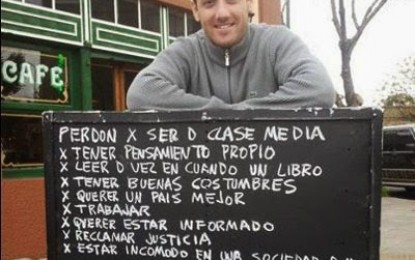 CAFÉ
PERDON X SER D CLASE MEDIA
X TENER PENSAMIENTO PROPIO
X LEER D VEZ EN CUANDO UN LIBRO
X TENER BUENAS COSTUMBRES
X QUERER UN PAIS MEJOR
X TRABAJAR
X QUERER ESTAR INFORMADO
X RECLAMAR JUSTICIA
X ESTAR INCOMODO EN UNA SOCIEDAD